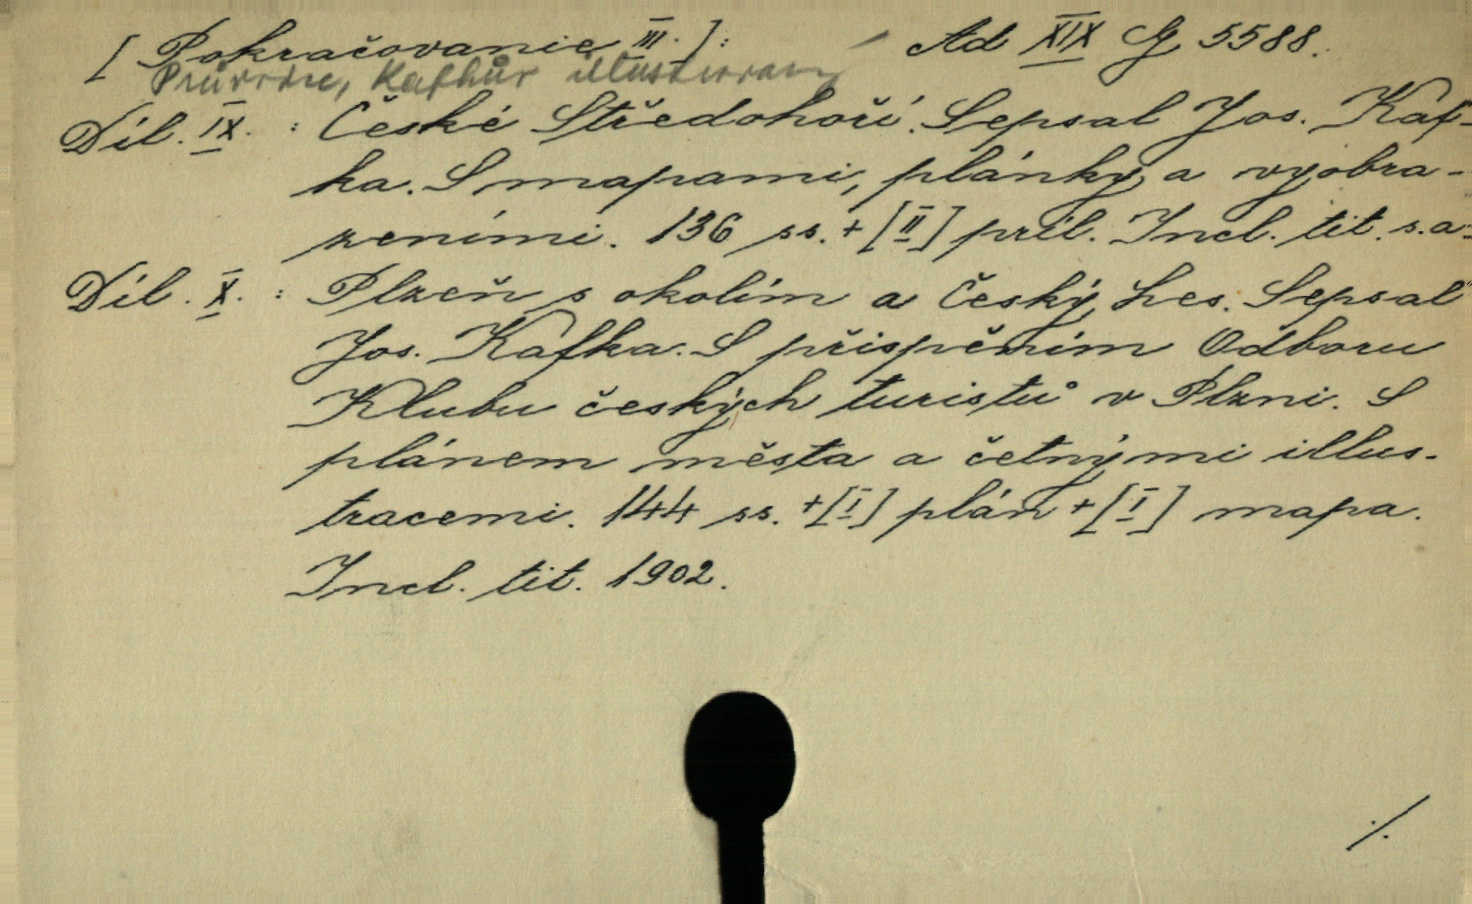 [Pokračovanie III.]: Ad XIX G 5588.
Průvodce, Kafkův illustrovaný
Díl. IX. : České Středohoří. Sepsal Jos. Kaf-
ka. S mapami, plánky a vyobra-
zeními. 136 ss. + [II] príl. Incl. tit. s.a.
Díl. X. : Plzeň s okolím a Český Les. Sepsal
Jos. Kafka. S přispěním Odboru
Klubu českých turistů v Plzni. S
plánem města a četnými illus-
tracemi. 144 ss. + [I] plán + [I] mapa.
Incl. tit. 1902.
./.